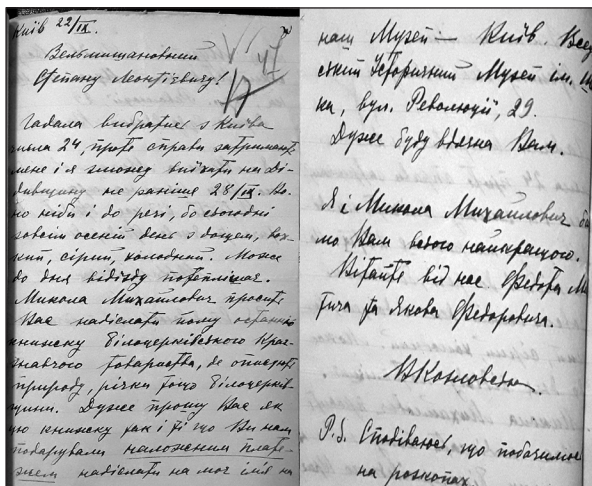 Київ 22/IX.
Вельмишановний
Степану Леонтієвичу!
Гадала вибратись з Києва
24, проте справи затримають
мене і я зможу виїхати на Ді-
дівщину не раніше 28/IX. Во-
но ніби і до речі, бо сьогодні
зовсім осенній день з дощем, вох-
кий, сірий, холодний. Може
до дня відїзду потеплішає.
Микола Михайлович просить
Вас надіслати йому останню
книжку Білоцерківського Крає-
знавчого товариства, де описують
природу, річки тощо Білоцерків-
щини. Дуже прошу Вас як
цю книжку так і ті що Ви нам
подарували наложеним плате-
жем надіслати на моє імя на
наш Музей — Київ Всеу
ський Історичний Музей ім. Ш
ка, вул. Революції, 29.
Дуже буду вдячна Вам.
Я і Микола Михайлович ба
мо Вам всього найкращого.
Вітайте від нас Федота М
тича та Якова Федоровича.
P.S. Сподіваюсь, що побачимос
на розкопах